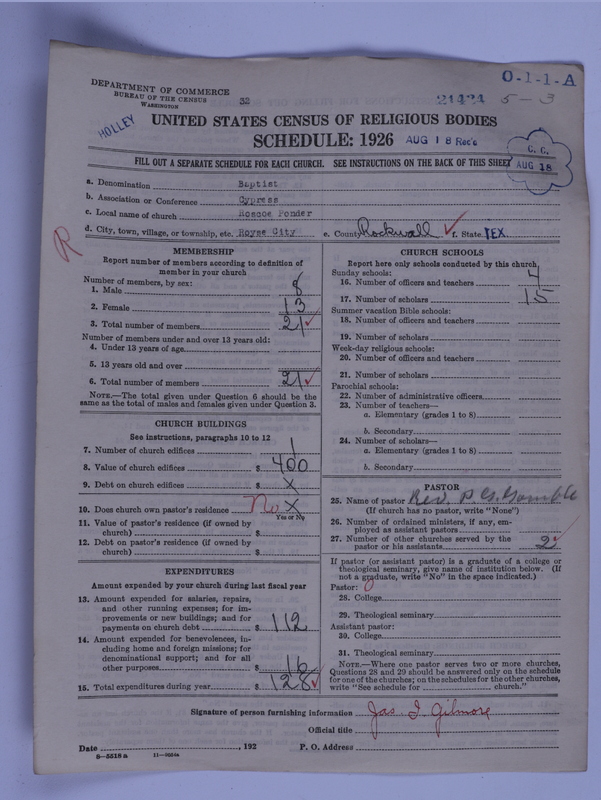 DEPARTMENT OF COMMERCE
BUREAU OF THE CENSUS
WASHINGTON
32
21424
5-3
O-1-1-A
HOLLEY
UNITED STATES CENSUS OF RELIGIOUS BODIES
SCHEDULE: 1926
AUG 18 Rec'd
C. C.
AUG 18
FILL OUT A SEPARATE SCHEDULE FOR EACH CHURCH. SEE INSTRUCTIONS ON THE BACK OF THIS SHEET
a. Denomination Baptist
b. Association or Conference Cypress
c. Local name of church Roscoe Ponder
d. City, town, village, or township, etc. Royse City e. County Rockwall ✓ f. State TEX.
R
MEMBERSHIP
Report number of members according to definition of
member in your church
Number of members, by sex:
1. Male 8
2. Female 13
3. Total number of members 21 ✓
Number of members under and over 13 years old:
4. Under 13 years of age
5. 13 years old and over
6. Total number of members 21 ✓
NOTE.—The total given under Question 6 should be the
same as the total of males and females given under Question 3.
CHURCH BUILDINGS
See instructions, paragraphs 10 to 12
7. Number of church edifices 1
8. Value of church edifices $ 400
9. Debt on church edifices $ X
10. Does church own pastor's residence? No X
Yes or No
11. Value of pastor's residence (if owned by
church) $
12. Debt on pastor's residence (if owned by
church) $
EXPENDITURES
Amount expended by your church during last fiscal year
13. Amount expended for salaries, repairs,
and other running expenses; for im-
provements or new buildings; and for
payments on church debt $ 112
14. Amount expended for benevolences, in-
cluding home and foreign missions; for
denominational support; and for all
other purposes $ 16
15. Total expenditures during year $ 128 ✓
CHURCH SCHOOLS
Report here only schools conducted by this church
Sunday schools:
16. Number of officers and teachers 4
17. Number of scholars 15
Summer vacation Bible schools:
18. Number of officers and teachers
19. Number of scholars
Week-day religious schools:
20. Number of officers and teachers
21. Number of scholars
Parochial schools:
22. Number of administrative officers
23. Number of teachers—
a. Elementary (grades 1 to 8)
b. Secondary
24. Number of scholars—
a. Elementary (grades 1 to 8)
b. Secondary
PASTOR
25. Name of pastor Rev. P. G. Gamble
(If church has no pastor, write "None")
26. Number of ordained ministers, if any, em-
ployed as assistant pastors
27. Number of other churches served by the
pastor or his assistants 2 ✓
If pastor (or assistant pastor) is a graduate of a college or
theological seminary, give name of institution below. (If
not a graduate, write "No" in the space indicated.)
Pastor: 0
28. College
29. Theological seminary
Assistant pastor:
30. College
31. Theological seminary
NOTE.—Where one pastor serves two or more churches,
Questions 28 and 29 should be answered only on the schedule
for one of the churches; on the schedules for the other churches,
write "See schedule for church."
Signature of person furnishing information Jas. I. Gilmore
Official title
Date , 192 P. O. Address
8-5518a 11-9554a